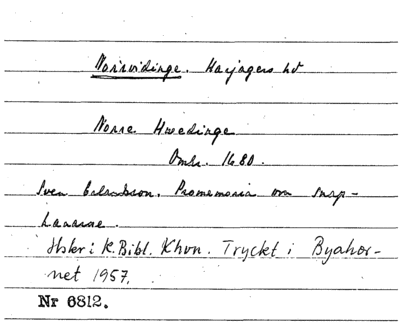 Norrvidinge. Harjagers hd
Norre Hwedinge
Omkr. 1680.
Sven Erlandsson. Promemoria om snap-
hanarne.
Hskr i K. Bibl. Khvn. Tryckt i Byahor-
net 1957.
Nr 6812.